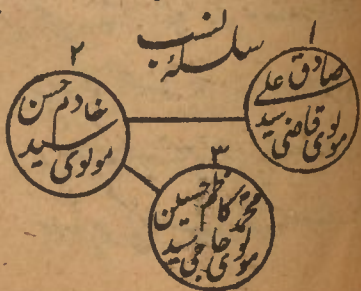 سلسلۂ نسب
۱
صادق علی
مولوی قاضی سید
۲
خادم حسن
مولوی سید
۳
محمد کاظم حسین
مولوی حاجی سید